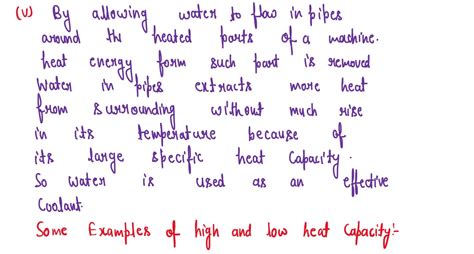 (v) By allowing water to flow in pipes
around the heated parts of a machine.
heat energy form such part is removed
Water in pipes extracts more heat
from surrounding without much rise
in its temperature because of
its large specific heat Capacity.
So water is used as an effective
Coolant.
Some Examples of high and low heat Capacity:-